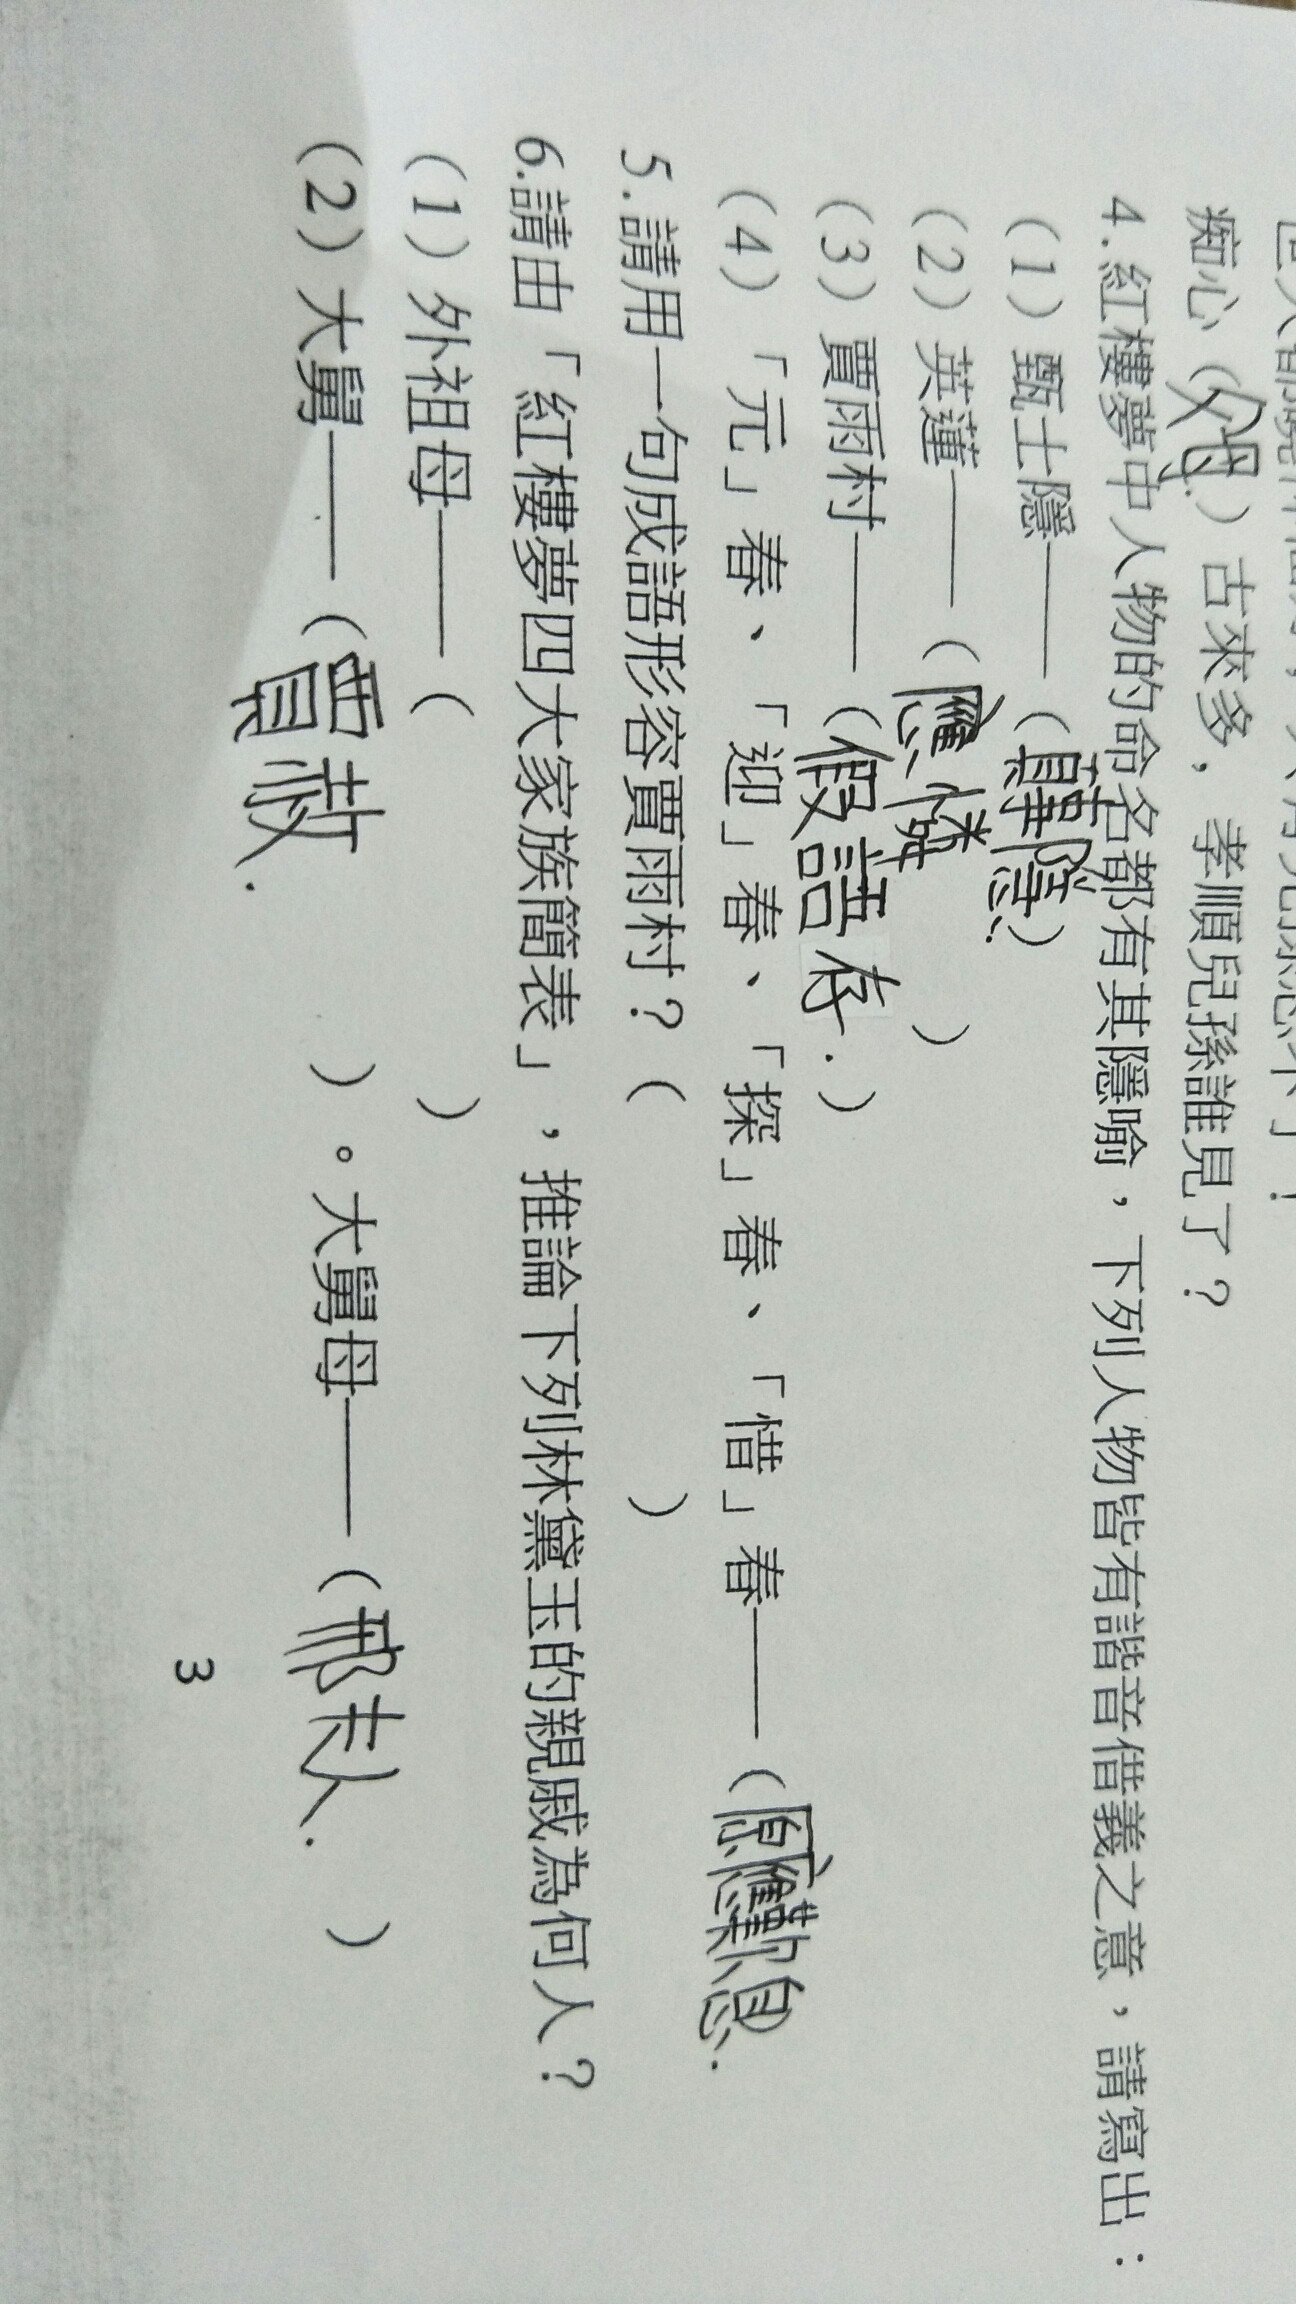 痴心（父母）古來多，孝順兒孫誰見了？
4.紅樓夢中人物的命名都有其隱喻，下列人物皆有諧音借義之意，請寫出：
（1）甄士隱——（真事隱）
（2）英蓮——（應憐）
（3）賈雨村——（假語存.）
（4）「元」春、「迎」春、「探」春、「惜」春——（原應歎息.
5.請用一句成語形容賈雨村？（ ）
6.請由「紅樓夢四大家族簡表」，推論下列林黛玉的親戚為何人？
（1）外祖母——（ ）
（2）大舅——（賈赦. ）。大舅母——（邢夫人. ）
3